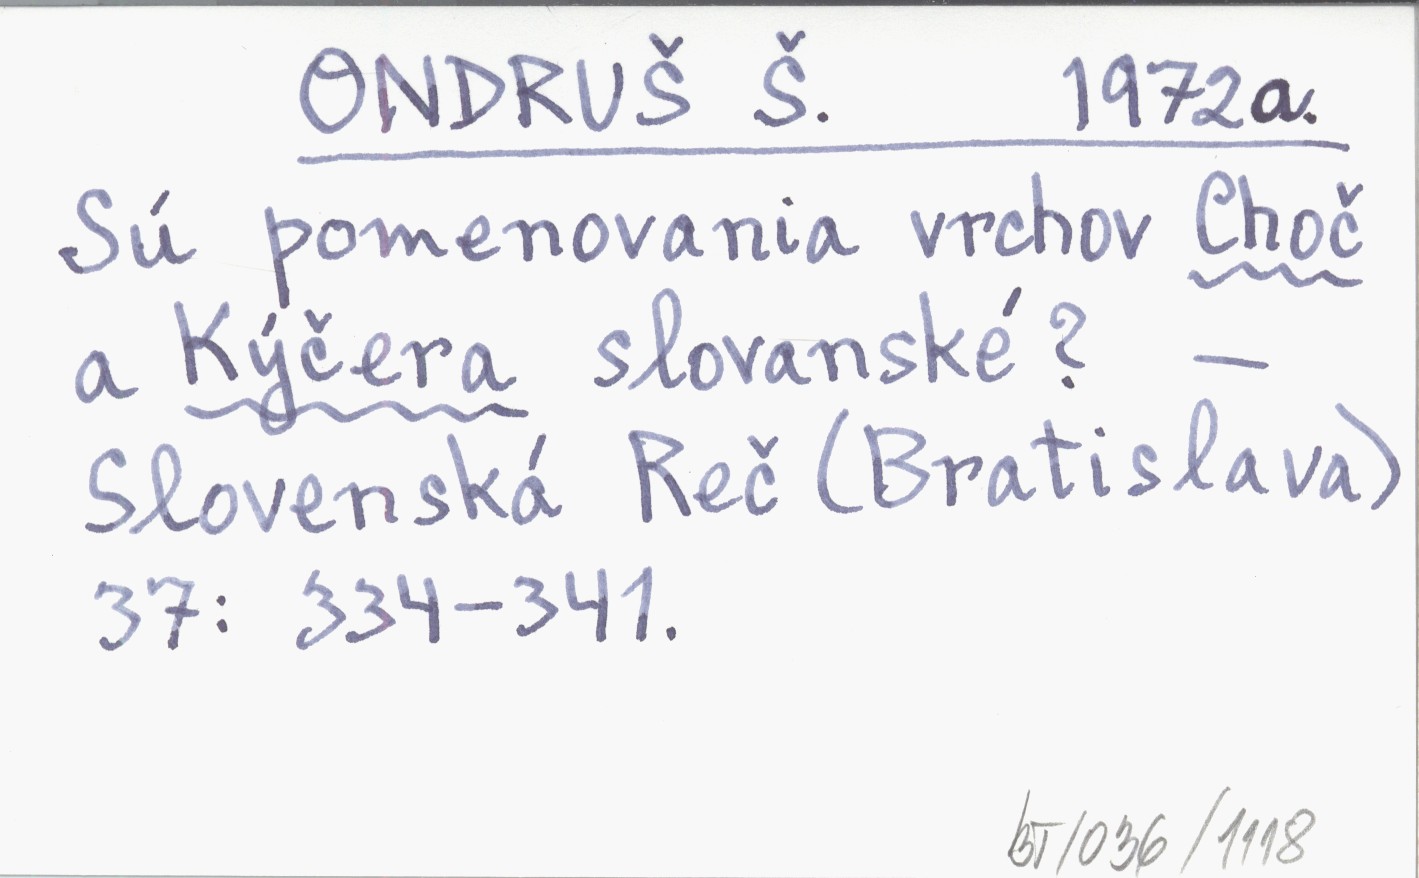 ONDRUŠ Š. 1972a.
Sú pomenovania vrchov Choč
a Kýčera slovanské? —
Slovenská Reč (Bratislava)
37: 334-341.
BT/036/1118